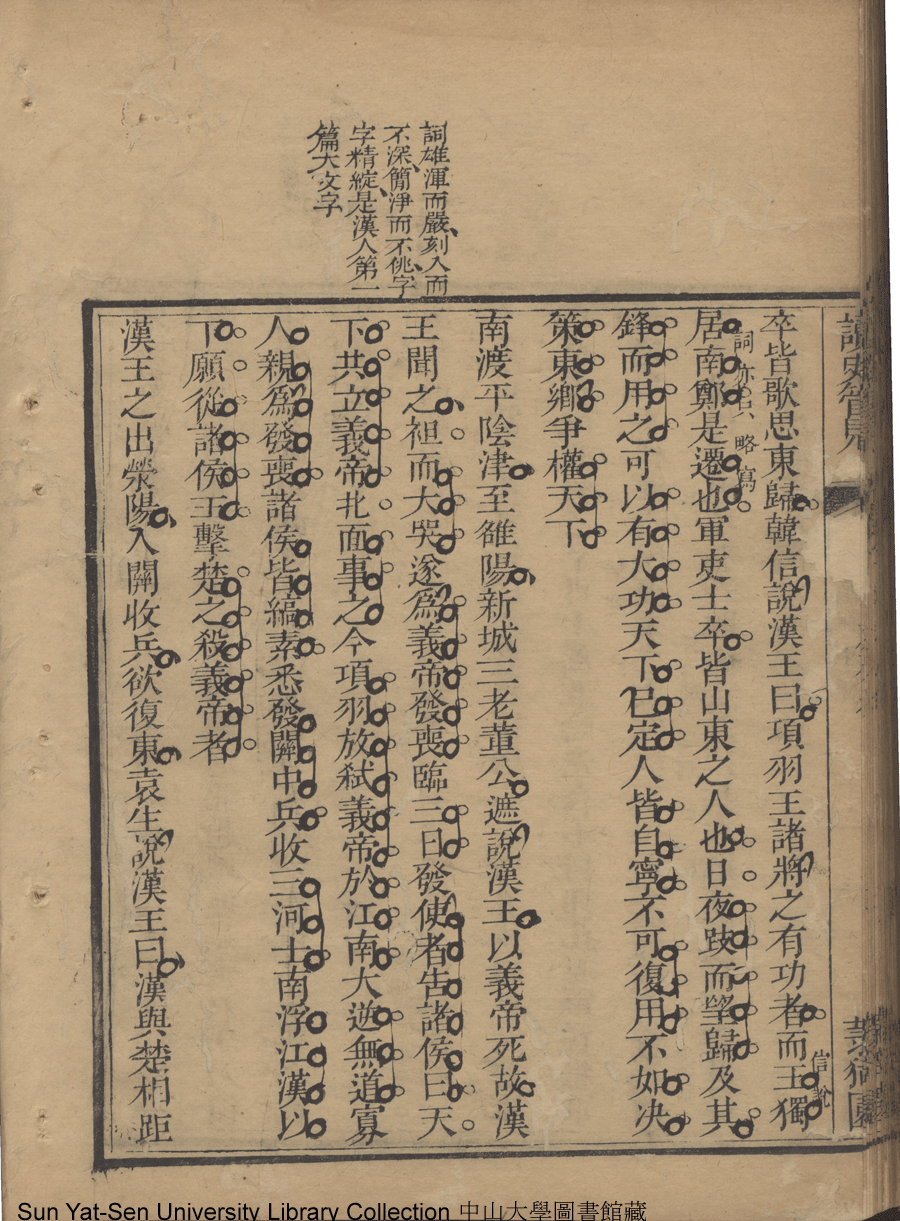 詞雄渾而嚴刻入而
不深簡淨而不佻字
字精綻是漢人第一
篇大文字
卒皆歌思東歸韓信說漢王曰項羽王諸將之有功者而王獨
信說
居南鄭是遷也軍吏士卒皆山東之人也日夜跂而望歸及其
詞亦名 略寫
鋒而用之可以有大功天下已定人皆自寧不可復用不如决
策東鄉爭權天下
南渡平陰津至雒陽新城三老董公遮說漢王以義帝死故漢
王聞之袒而大哭遂爲義帝發喪臨三日發使者告諸侯曰天
下共立義帝北面事之今項羽放弑義帝於江南大逆無道寡
人親爲發喪諸侯皆縞素悉發關中兵收三河士南浮江漢以
下願從諸侯王擊楚之殺義帝者
漢王之出滎陽入關收兵欲復東袁生說漢王曰漢與楚相距
Sun Yat-Sen University Library Collection 中山大學圖書館藏